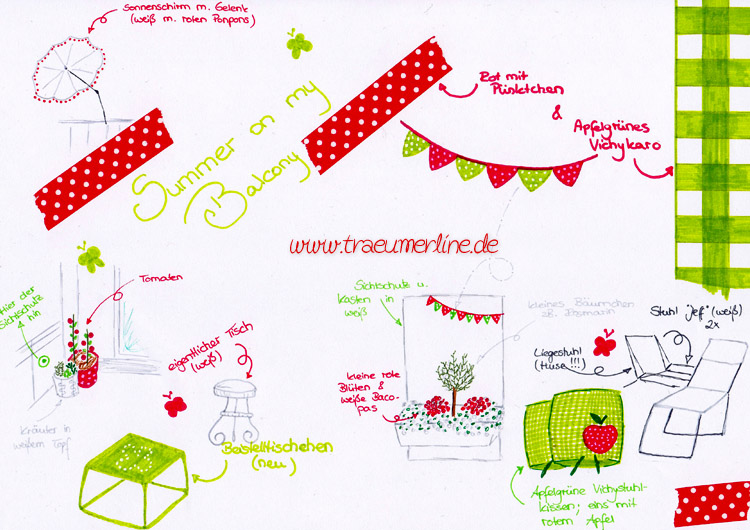 Sonnenschirm m. Gelenk
(weiß m. roten Ponpons)
Summer on my
Balcony
Rot mit
Pünktchen
&
Apfelgrünes
Vichykaro
www.traeumerline.de
Hier der
Sichtschutz
hin
Tomaten
Kräuter in
weißem Topf
eigentlicher Tisch
(weiß)
Beistelltischchen
(neu)
Sichtschutz u.
Kasten in
weiß
kleines Bäumchen
zB. Rosmarin
kleine rote
Blüten &
weiße Baco-
pas
Stuhl "Jeff" (weiß)
2x
Liegestuhl
(türkise!!!)
Apfelgrüne Vichystuhl-
kissen; eins mit
rotem Apfel